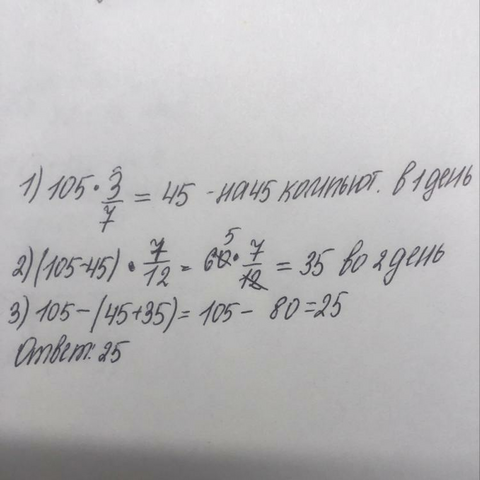 1) 105 · 3/7 = 45 - на 45 компьют. в 1 день
2) (105-45) · 7/12 = 60 · 7/12 = 35 во 2 день
5
3) 105 - (45+35) = 105 - 80 = 25
Ответ: 25